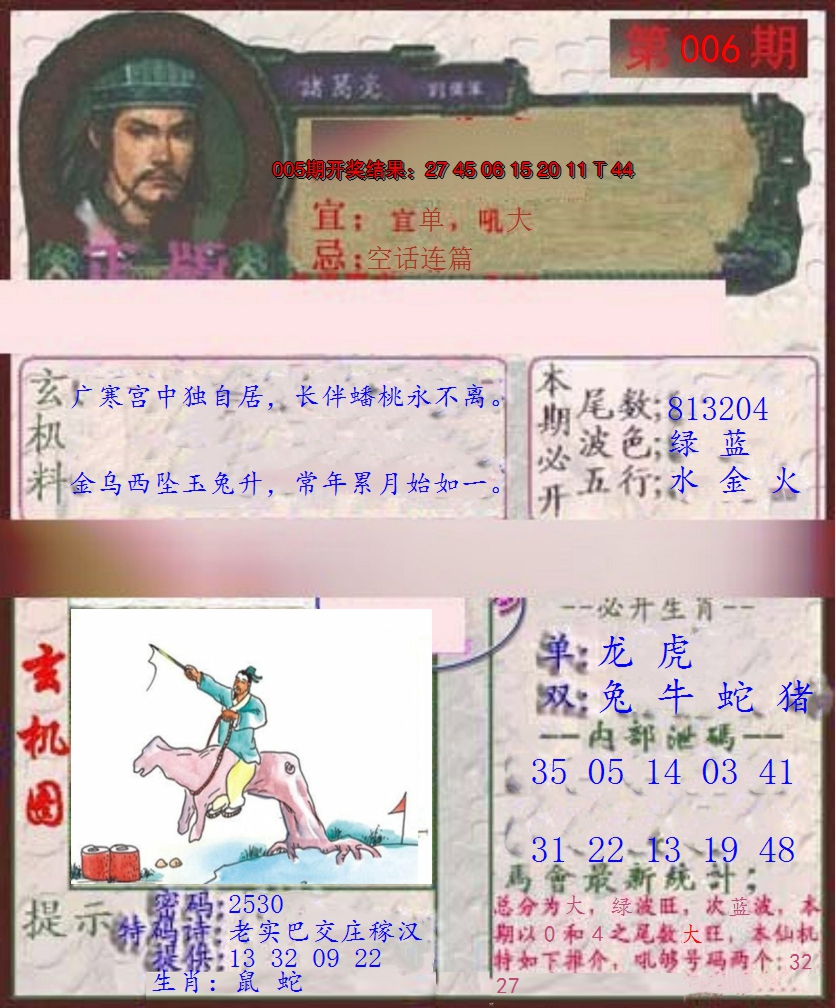 第006期
諸葛亮
005期开奖结果：27 45 06 15 20 11 T 44
宜：宜单，吼大
忌：空话连篇
正版
玄机料
广寒宫中独自居，长伴蟠桃永不离。
金乌西坠玉兔升，常年累月始如一。
本期必开
尾数；813204
波色；绿 蓝
五行；水 金 火
玄机图
--必开生肖--
单：龙 虎
双：兔 牛 蛇 猪
--内部泄碼--
35 05 14 03 41
31 22 13 19 48
馬會最新统計；
总分为大，绿波旺，次蓝波，本
期以0和4之尾数大旺，本仙机
特如下推介，吼够号码两个：32
27
提示
密码：2530
特码诗：老实巴交庄稼汉
提供：13 32 09 22
生肖：鼠 蛇